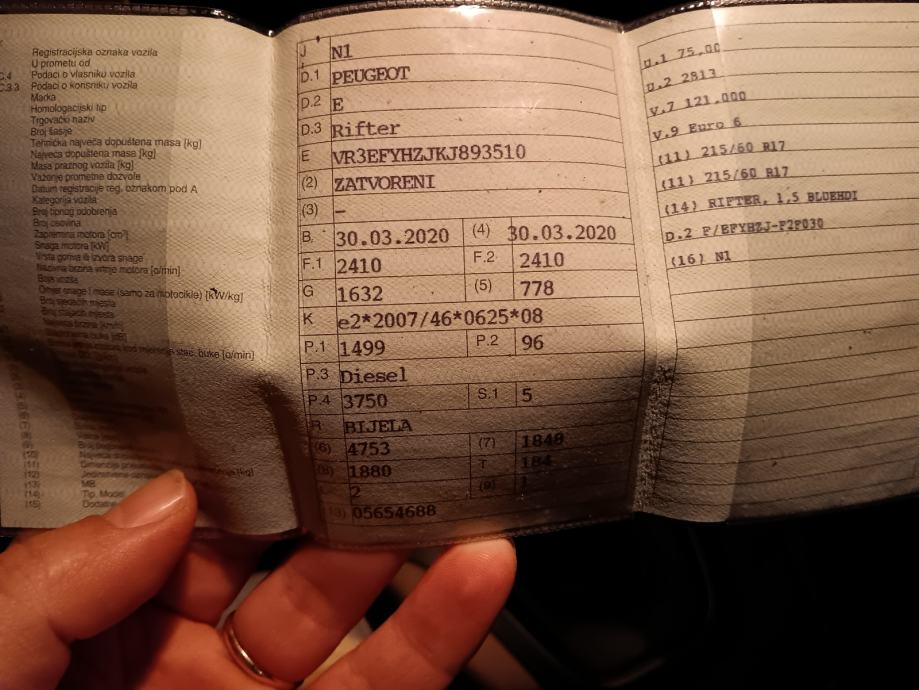 Registracijska oznaka vozila
U prometu od
C.4 Podaci o vlasniku vozila
C.3.3 Podaci o korisniku vozila
Marka
Homologacijski tip
Trgovački naziv
Broj šasije
Tehnička najveća dopuštena masa [kg]
Najveća dopuštena masa [kg]
Masa praznog vozila [kg]
Važenje prometne dozvole
Datum registracije reg. oznakom pod A
Kategorija vozila
Broj tipnog odobrenja
Broj osovina
Zapremina motora [cm³]
Snaga motora [kW]
Vrsta goriva ili izvora snage
Nazivna brzina vrtnje motora [o/min]
Boja vozila
Omjer snage i mase (samo za motocikle) [kW/kg]
Broj sjedećih mjesta
Broj stajaćih mjesta
(11)
(12)
(13) MB
(14) Tip, Model
(15)
J N1
D.1 PEUGEOT
D.2 E
D.3 Rifter
E VR3EFYHZJKJ893510
(2) ZATVORENI
(3) –
B. 30.03.2020 (4) 30.03.2020
F.1 2410 F.2 2410
G 1632 (5) 778
K e2*2007/46*0625*08
P.1 1499 P.2 96
P.3 Diesel
P.4 3750 S.1 5
R BIJELA
(6) 4753 (7) 1848
(8) 1880 T 184
2 (9) 1
05654688
U.1 75,00
U.2 2813
V.7 121,000
V.9 Euro 6
(11) 215/60 R17
(11) 215/60 R17
(14) RIFTER, 1,5 BLUEHDI
D.2 F/EFYHZJ-F2F030
(16) N1